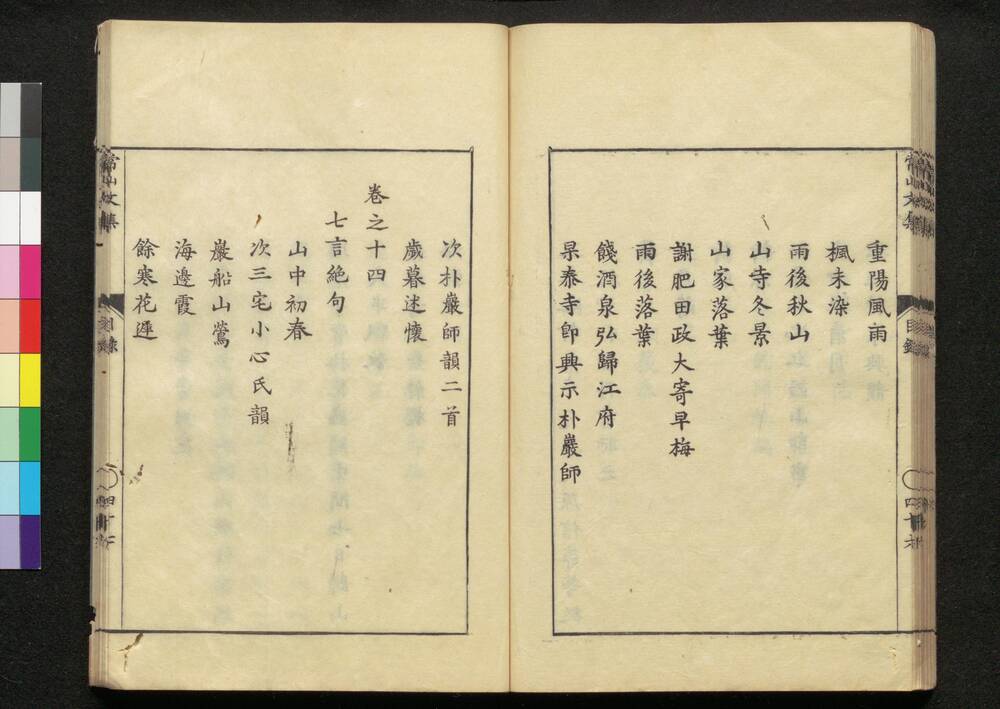 重陽風雨
楓未染
雨後秋山
山寺冬景
山家落葉
謝肥田政大寄早梅
雨後落葉
餞酒泉弘歸江府
杲泰寺即興示朴巖師
次朴巖師韻二首
歲暮述懷
卷之十四
七言絶句
山中初春
次三宅小心氏韻
巖船山鶯
海邊霞
餘寒花遲
常山文集
目錄
常山文集
目錄